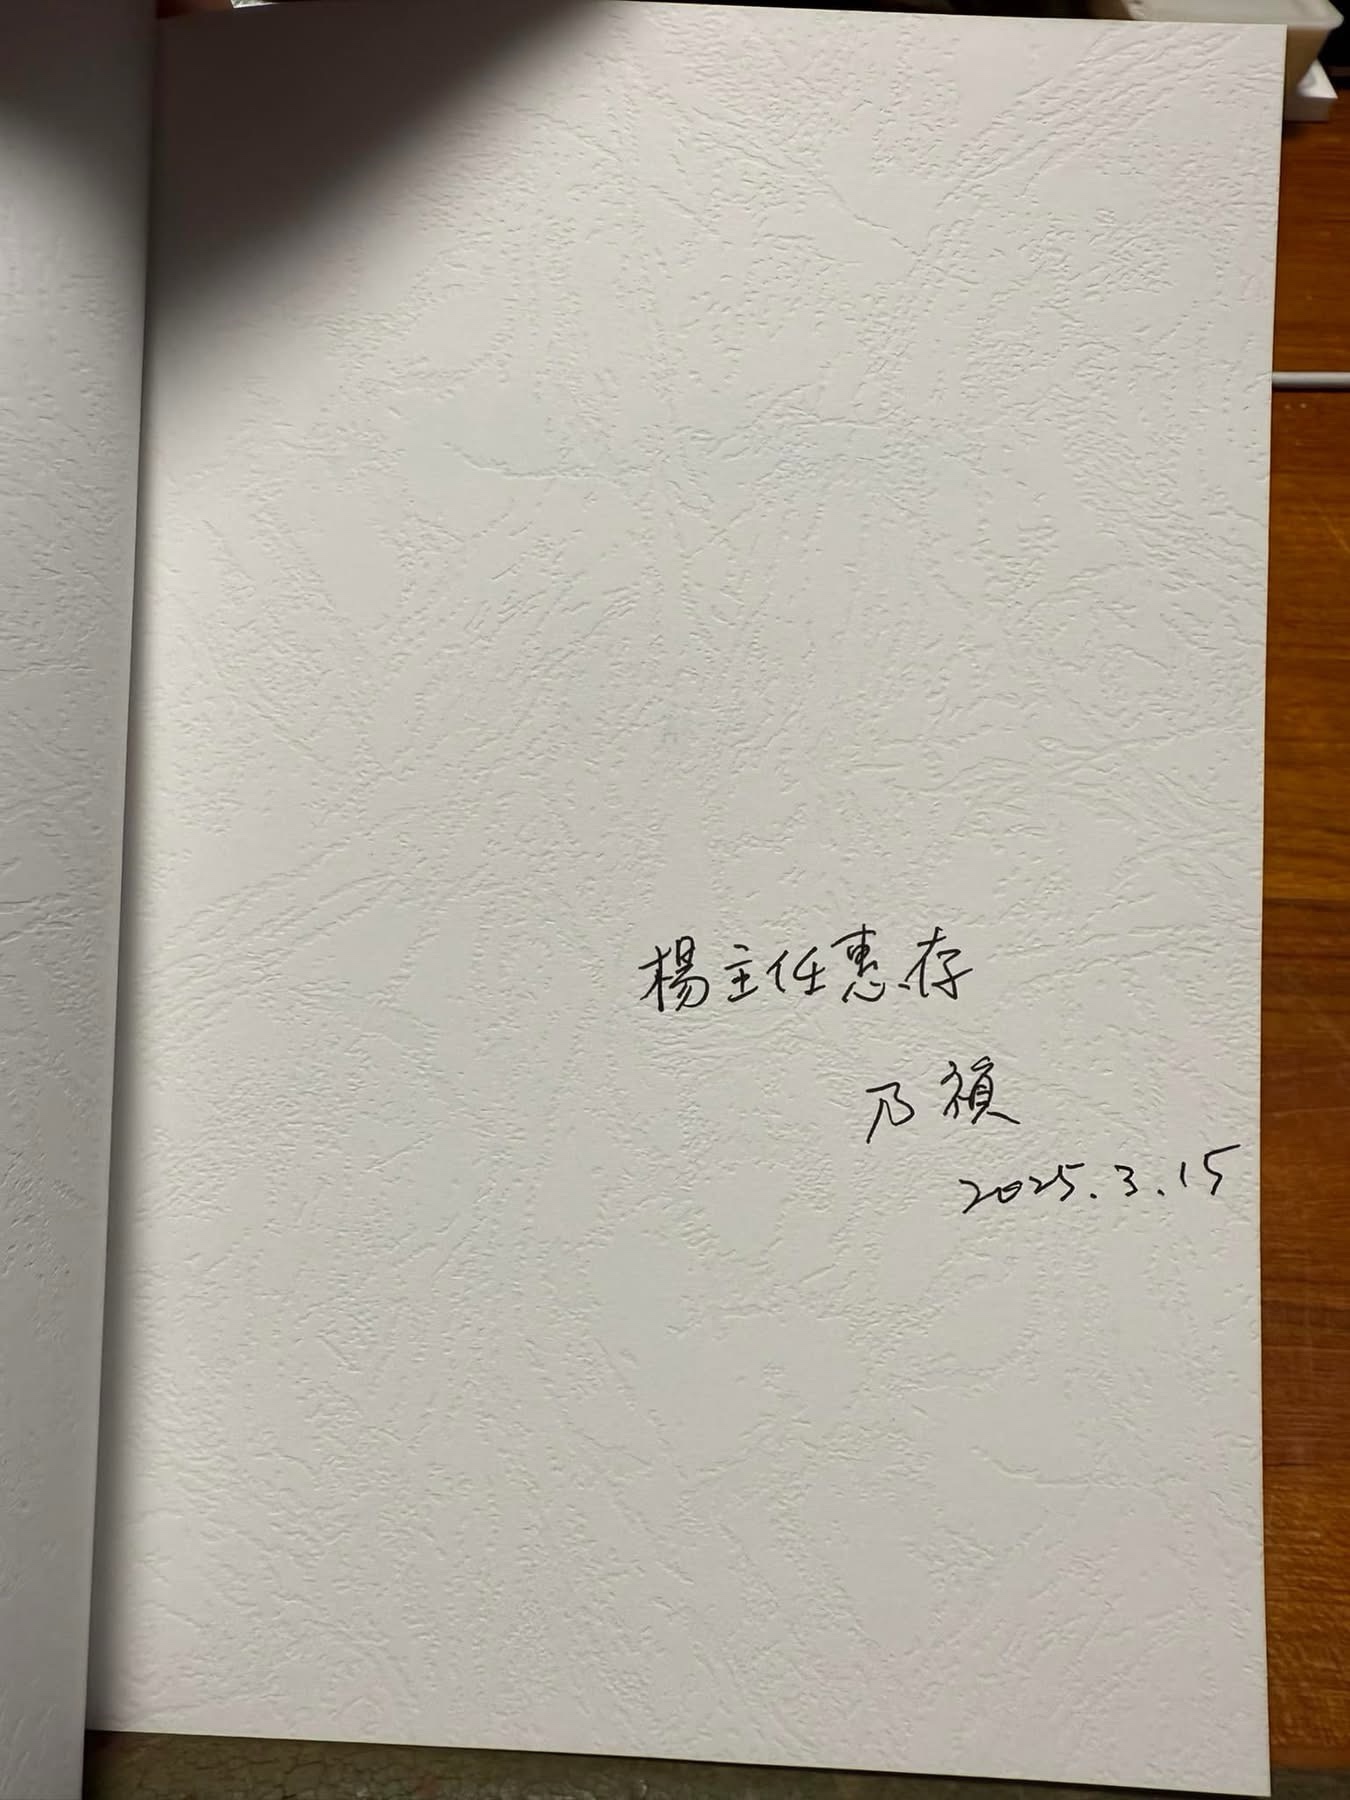 楊主任惠存
乃禎
2025.3.15